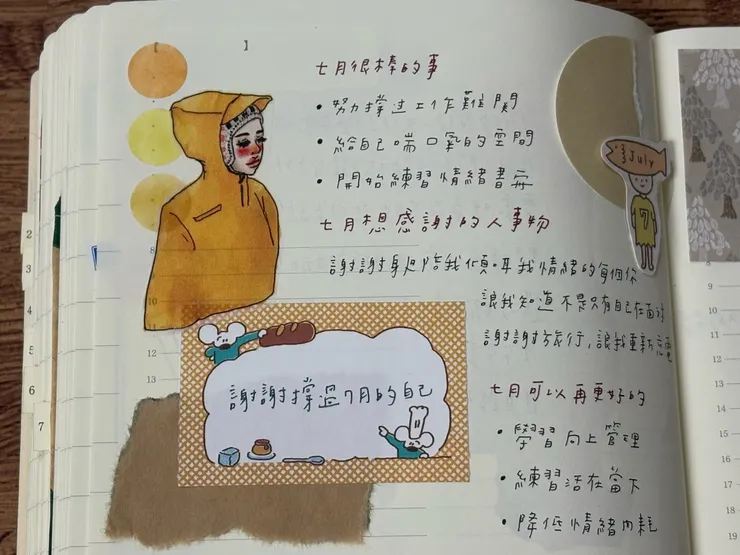 七月很棒的事
• 努力撐过工作難関
• 給自己喘口氣的空間
• 開始練習情緒書寫
七月想感謝的人事物
謝謝身邊陪我傾耳我情緒的每個你
讓我知道不是只有自己在面對
謝謝旅行，讓我重新充電
謝謝撐過7月的自己
七月可以再更好的
• 學習向上管理
• 練習活在當下
• 降低情緒內耗
July
7
8
10
11
12
13
2
3
4
5
6
7
8
9
10
11
12
13
14
15
16
17
18
19